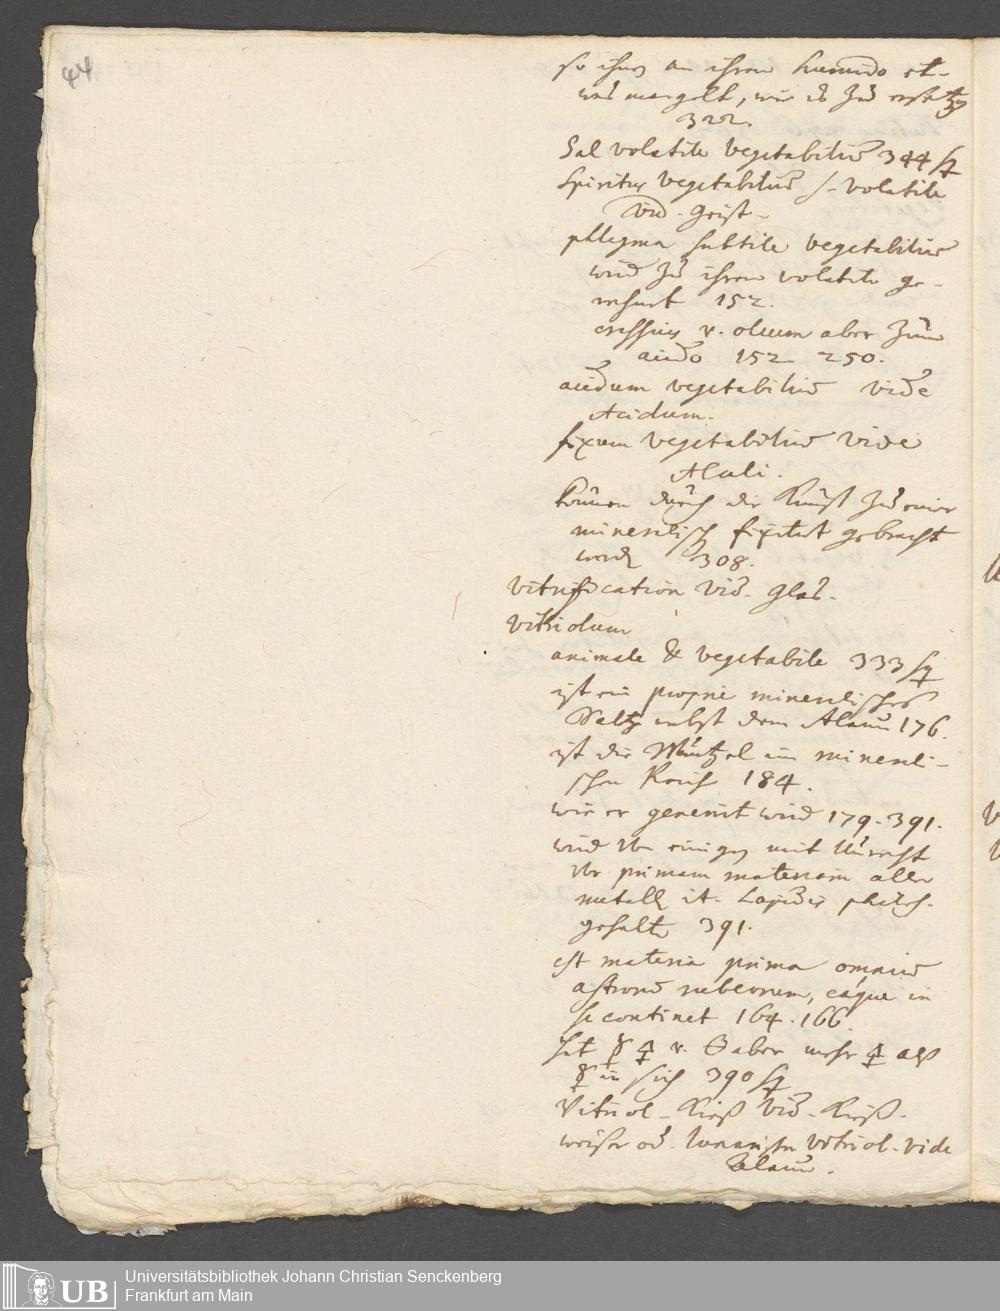 44
so ihnen an ihrem humido et-
was mangelt, wie es zu ersetzen
322.
Sal volatile vegetabilium 344 sq
Spiritus vegetabilium s. volatile
vid. Geist.
phlegma subtile vegetabilium
wird zu ihrem volatile ge-
rechnet 152.
crassius v. oleum aber zum
acido 152 250.
acidum vegetabilium vide
Acidum.
fixum vegetabilium vide
Alcali.
können durch die Kunst zu einer
mineralisch fixitat gebracht
werden 308.
vitrification vid. glas.
vitriolum
animale & vegetabile 333 sq
ist ein proprie mineralisches
Saltz nebst dem Alaun 176.
ist die Wurtzel im minerali-
schen Reich 184.
wie er generirt wird 179. 391.
wird von einigen mit Unrecht
vor primam materiam aller
metallen it. Lapidis philos.
gehalten 391.
est materia prima omnium
astrorum rubeorum, eaque in
se continet 164. 166.
hat ☿ 🜍 v. 🜔 aber mehr 🜍 als
☿ in sich 390 sq
Vitriol-Kieß vid. Kieß.
weißer od. vitriol. vide
Alaun.
UB
Universitätsbibliothek Johann Christian Senckenberg
Frankfurt am Main